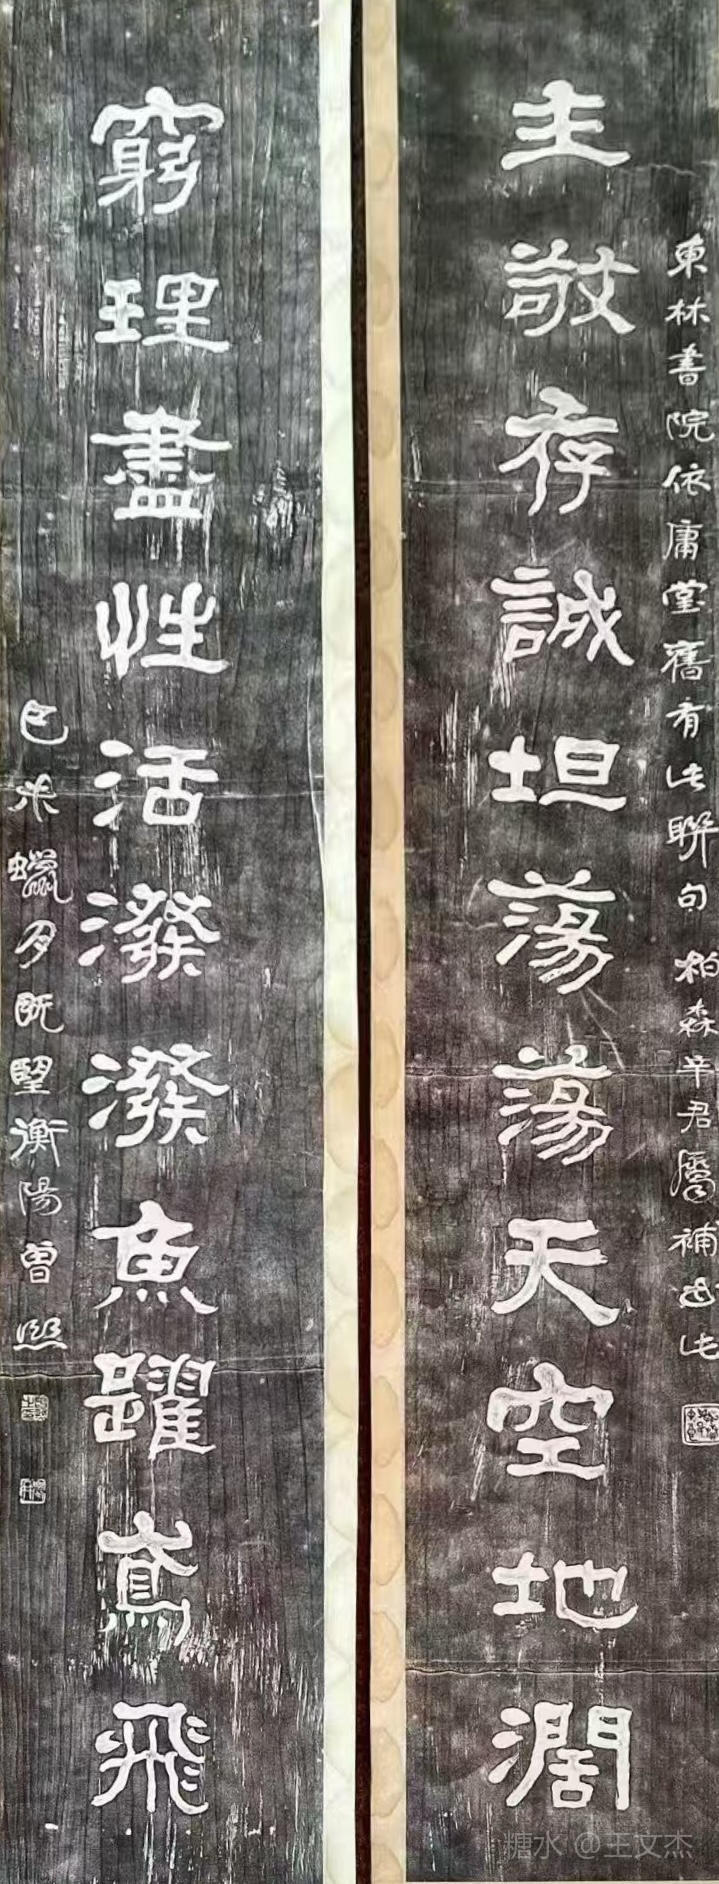 東林書院依庸堂舊有此聯句柏森辛君屬補書此
主敬存誠坦蕩蕩天空地濶
窮理盡性活潑潑魚躍鳶飛
己未蠟月既望衡陽曾熙
糖水 @王文杰